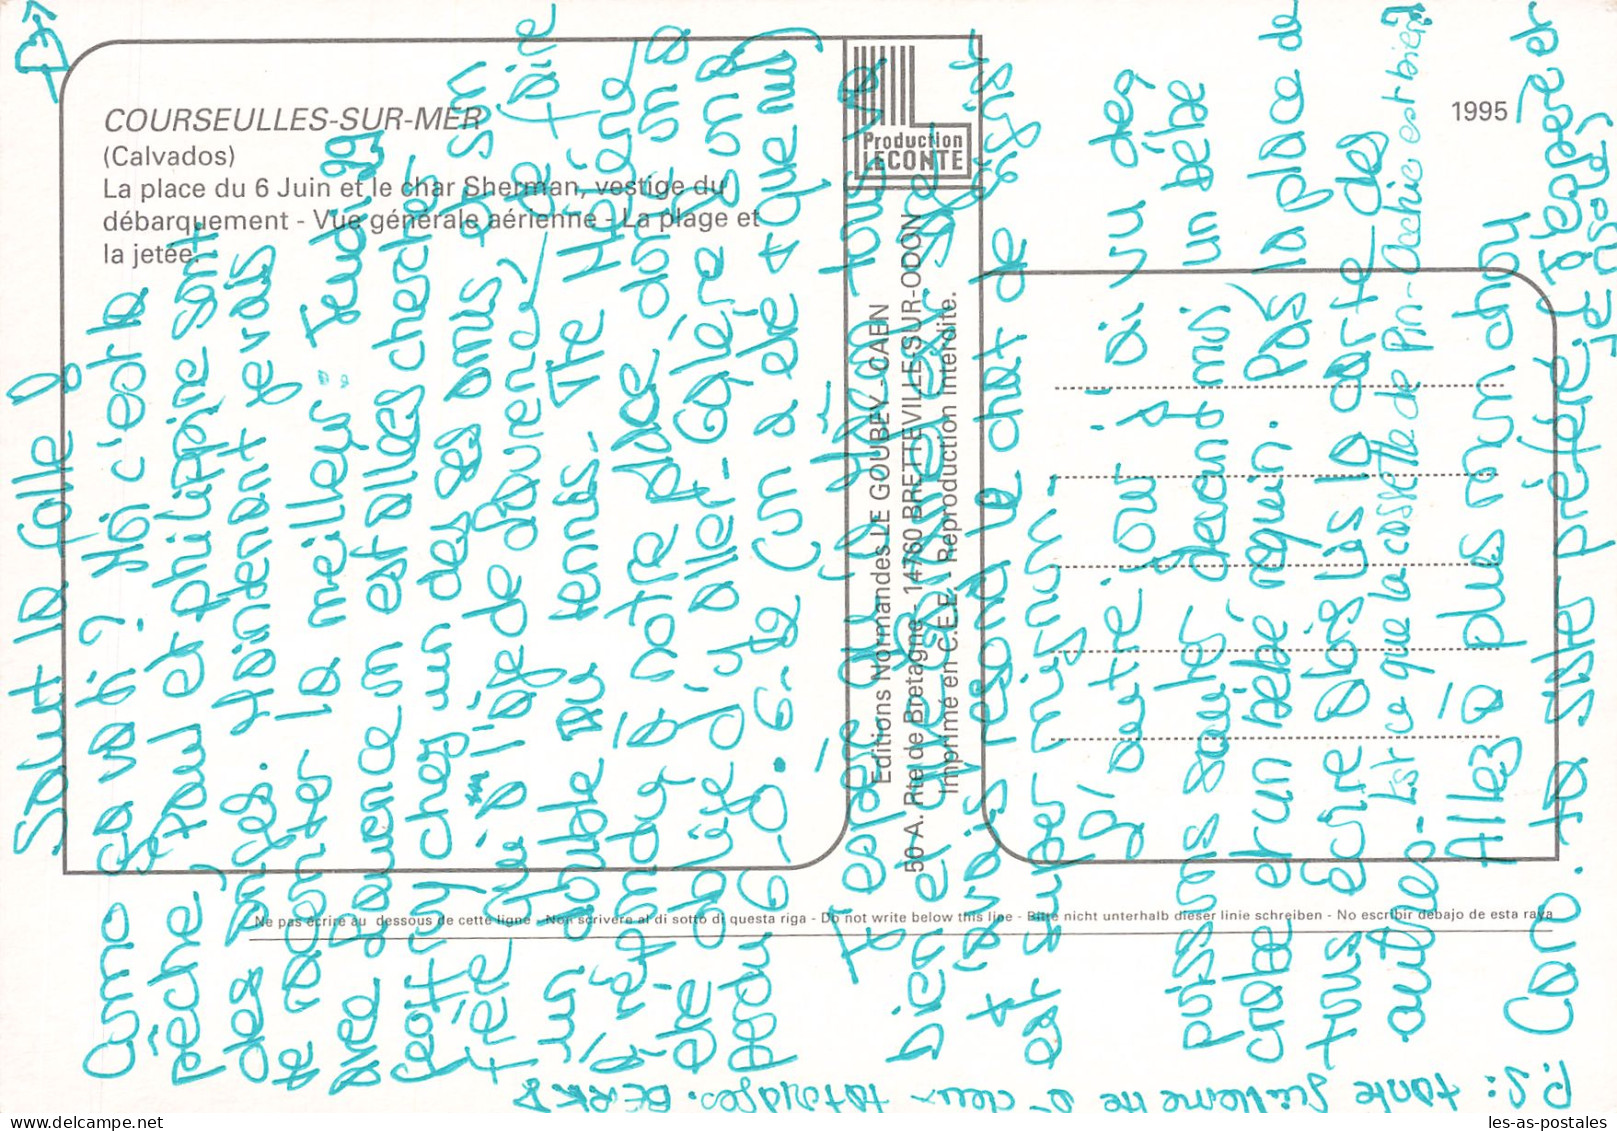 COURSEULLES-SUR-MER
(Calvados)
La place du 6 Juin et le char Sherman, vestige du
débarquement - Vue générale aérienne - La plage et
la jetée.
Production
LECONTE
1995
Editions Normandes LE GOUBEY - CAEN
50 A. Rte de Bretagne - 14760 BRETTEVILLE-SUR-ODON
Imprimé en C.E.E. - Reproduction interdite.
Ne pas écrire au dessous de cette ligne - Non scrivere al di sotto di questa riga - Do not write below this line - Bitte nicht unterhalb dieser linie schreiben - No escribir debajo de esta raya
Salut la folle
Como ça va hi? Hoi c'est la
pêche, Paul et philippine sont
des anges. Maintenant je vais
te raconter la meilleur. Jeudi
avec Laurence on est allés chercher
Geoffroy chez un des ses amis, et son
frère qui a l'age de Laurence de faire
un double au tennis. The Hélène
a répondu à notre place donc on a
été obligé d'y aller. Galère on a
perdu 6-0. 6-2 (on a été + que nul)
J'espère qu'à Yaca tout va
bien et que Carmen
+ avis resona le chat de
est super mignon.
L'autre jour j'ai vu des
puissons sauter devant moi un bébé
crabe et un bébé requin. Pas la place de
tous écrire alors lis la carte des
autres. Est ce que la cassette de Pin-Occhio est bien?
Allez à plus mon chou
Caro. ta sista préférée
P.S: tante Guillemette a ceux tatouages. BERK